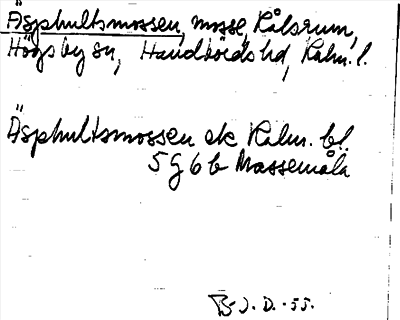 Äsphultsmossen, mosse, Kålsrum,
Högsby sn, Handbörds hd, Kalm. l.
Äsphultsmossen ek Kalm. bl.
5 G 6 b Massemåla
B-J. D. -55.